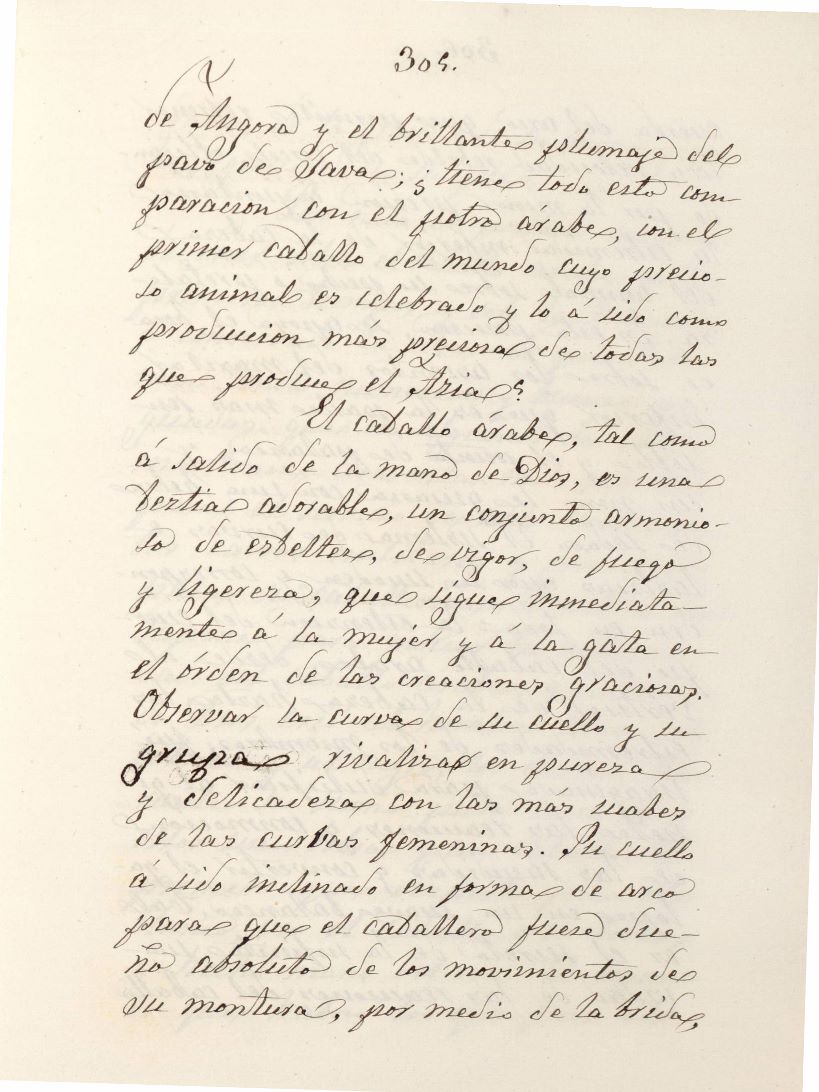 305.
de Angora y el brillante plumaje del
pavo de Java; ¿tiene todo esto com-
paracion con el potro árabe, con el
primer caballo del mundo cuyo precio-
so animal es celebrado y lo á sido como
produccion más preciosa de todas las
que produce el Azia?
El caballo árabe, tal como
á salido de la mano de Dios, es una
bestia adorable, un conjunto armonio-
so de esbeltes, de vigor, de fuego
y ligereza, que sigue inmediata-
mente á la mujer y á la gata en
el órden de las creaciones graciosas.
Observar la curva de su cuello y su
grupa rivaliza en pureza
y delicadeza con las más suabes
de las curvas femeninas. Su cuello
á sido inclinado en forma de arco
para que el caballero fuese due-
ño absoluto de los movimientos de
su montura, por medio de la brida,